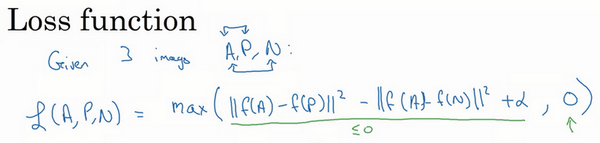 Loss function
Given 3 images A,P,N:
L(A,P,N) = max(||f(A)-f(P)||² - ||f(A)-f(N)||² + α, 0)
≤0